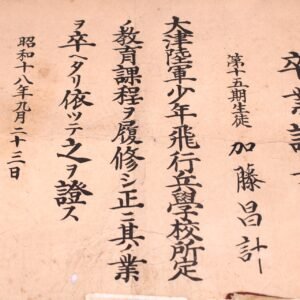 卒業證書
第十五期生徒 加藤昌計
大津陸軍少年飛行兵學校所定
ノ教育課程ヲ履修シ正ニ其ノ業
ヲ卒ヘタリ依ツテ之ヲ證ス
昭和十八年九月二十三日